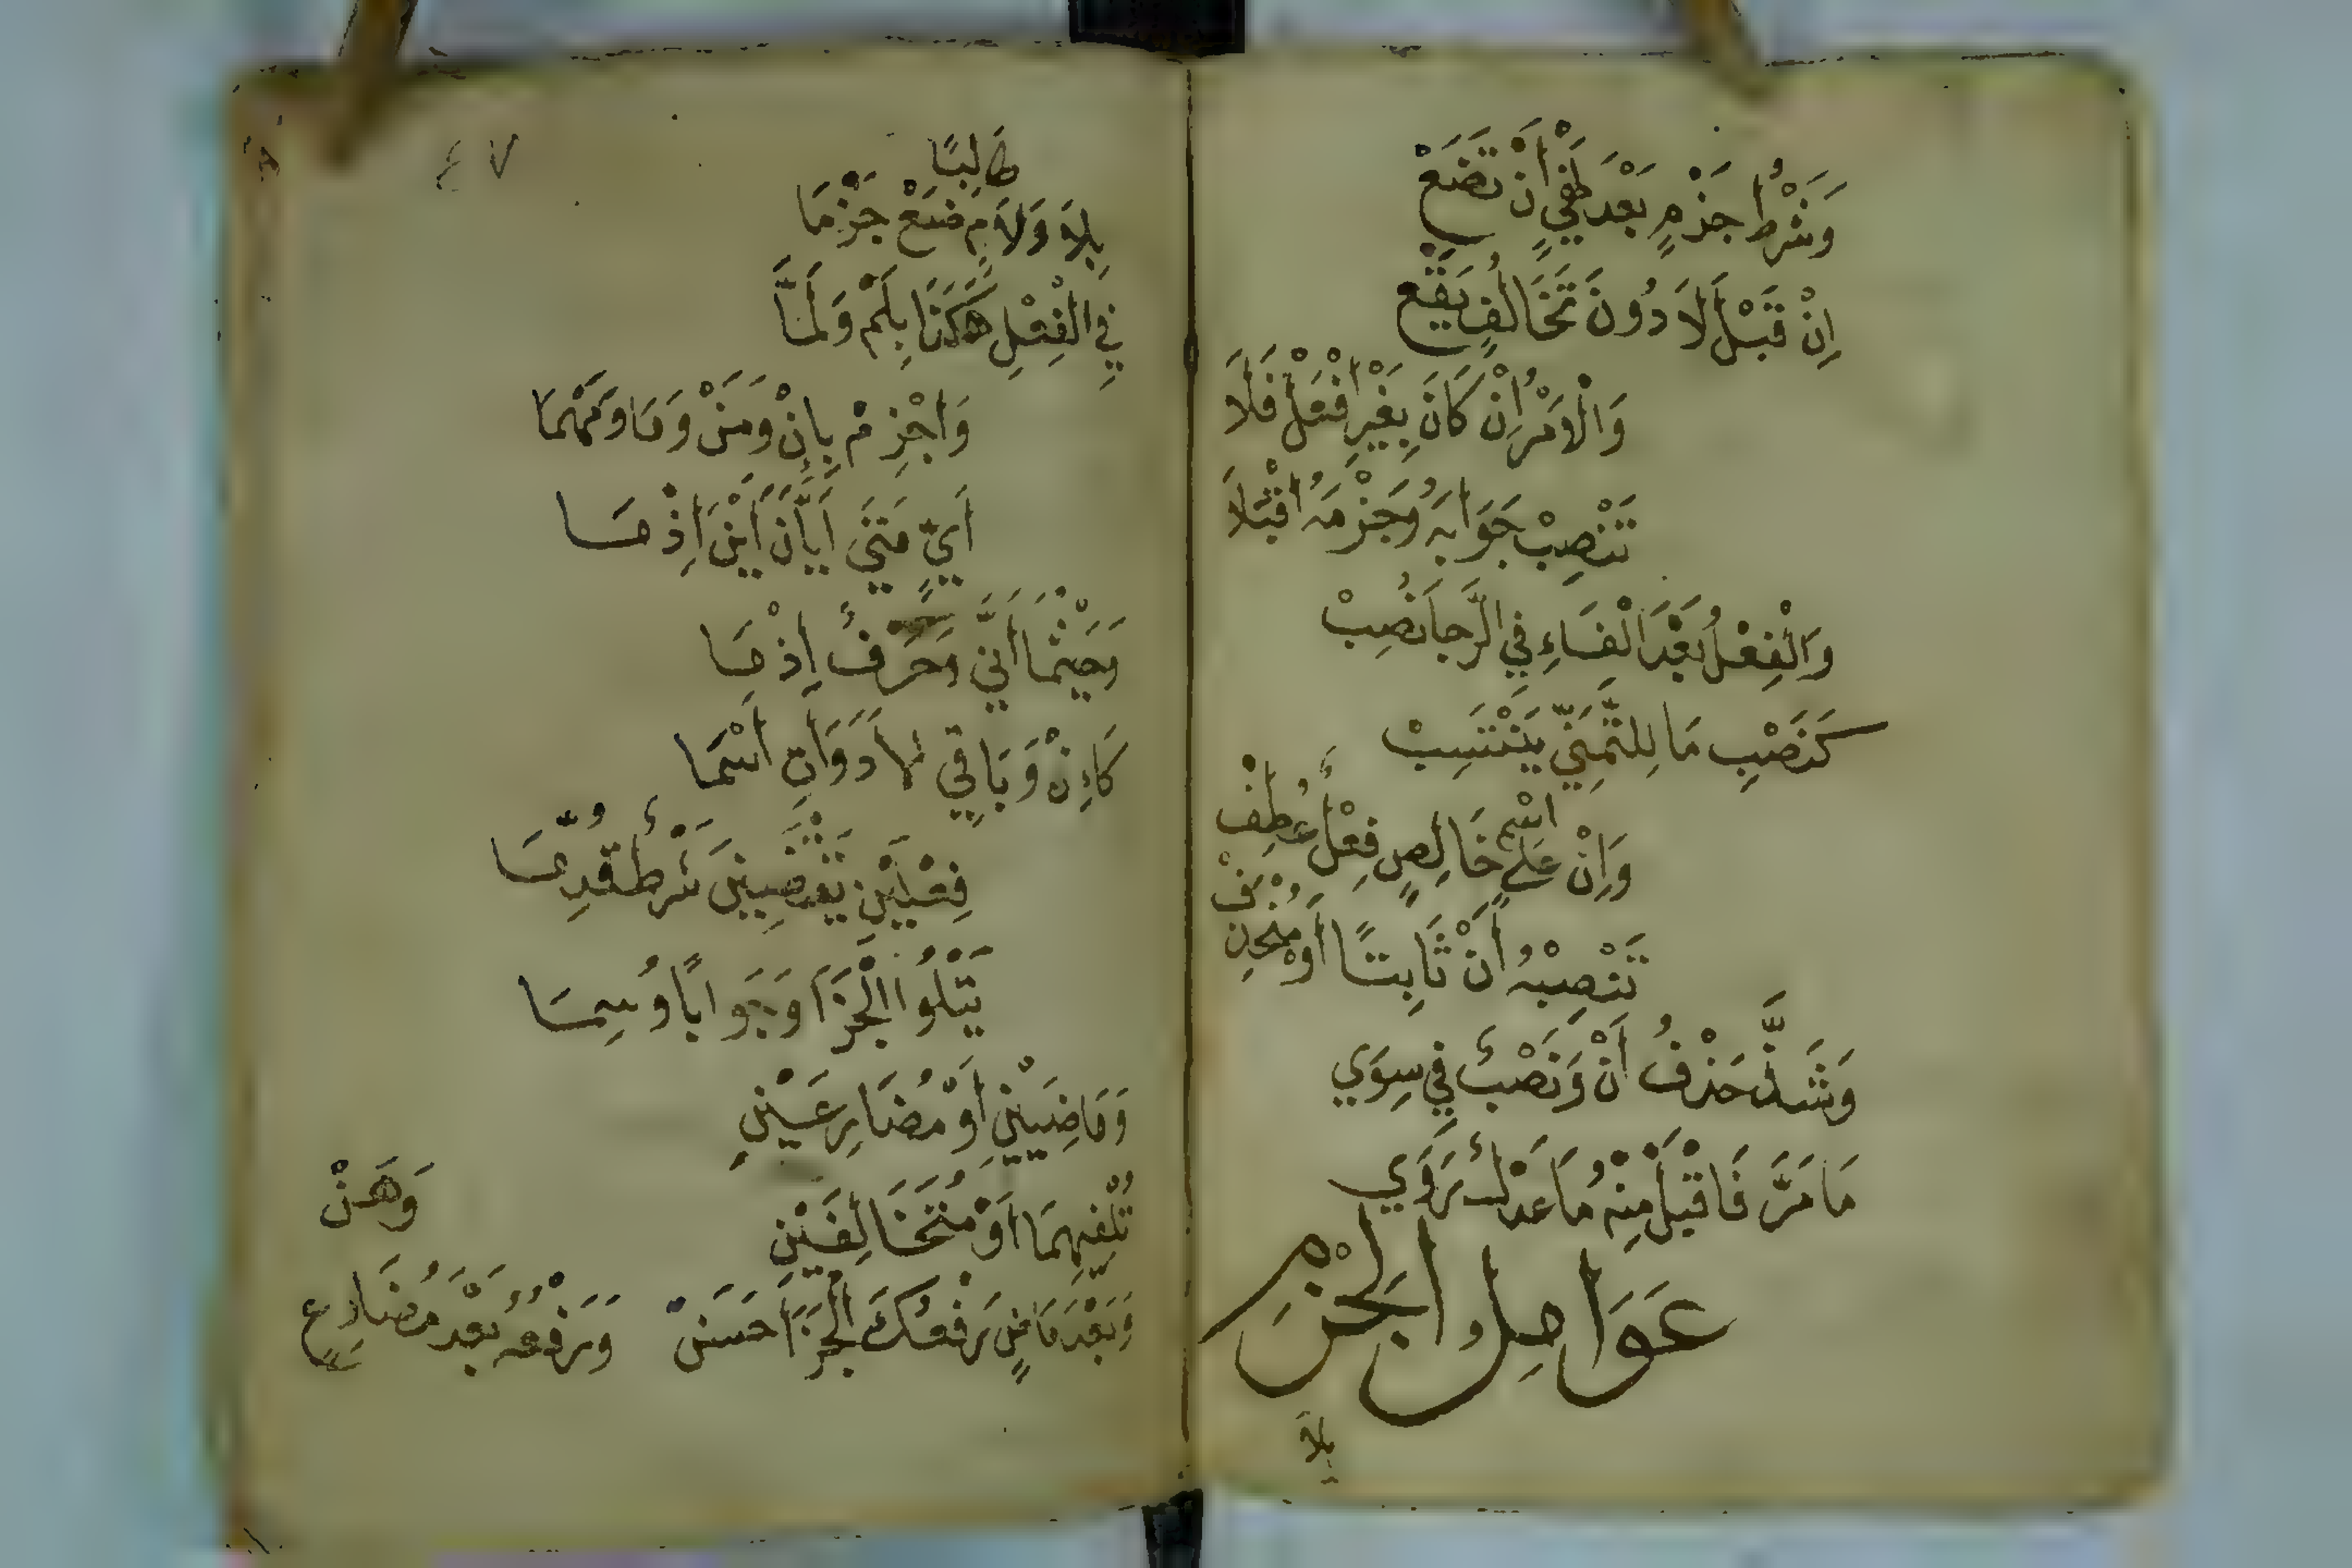 وَشَرْطُ جَزْمٍ بَعْدَ نَفْيٍ أَنْ تَضَعْ
إِنْ قَبْلَ لَا دُونَ تَخَالُفٍ يَقَعْ
وَالْأَمْرُ إِنْ كَانَ بِغَيْرِ افْعَلْ فَلَا
تَنْصِبْ جَوَابَهُ وَجَزْمَهُ اقْبَلَا
وَالْفِعْلُ بَعْدَ الْفَاءِ فِي الرَّجَا نُصِبْ
كَنَصْبِ مَا لِلتَّمَنِّي يَنْتَسِبْ
وَإِنْ عَلَى اسْمٍ خَالِصٍ فِعْلٌ عُطِفْ
تَنْصِبْهُ أَنْ ثَابِتًا أَوْ مُنْحَذِفْ
وَشَذَّ حَذْفُ أَنْ وَنَصْبٌ فِي سِوَي
مَا مَرَّ فَاقْبَلْ مِنْهُ مَا عَدْلٌ رَوَي
عَوَامِلُ الْجَزْمِ
بِلَا
٤٧
بِلَا وَلَامٍ طَالِبًا ضَعْ جَزْمَا
فِي الْفِعْلِ هَكَذَا بِلَمْ وَلَمَّا
وَاجْزِمْ بِإِنْ وَمَنْ وَمَا وَمَهْمَا
أَيٍّ مَتَى أَيَّانَ أَيْنَ إِذْ مَا
وَحَيْثُمَا أَنَّى وَحَرْفٌ إِذْ مَا
كَإِنْ وَبَاقِي الْأَدَوَاتِ أَسْمَا
فِعْلَيْنِ يَقْتَضِينَ شَرْطٌ قُدِّمَا
يَتْلُوا الْجَزَا وَجَوَابًا وُسِمَا
وَمَاضِيَيْنِ أَوْ مُضَارِعَيْنِ
تُلْفِيهِمَا أَوْ مُتَخَالِفَيْنِ
وَبَعْدَ مَاضٍ رَفْعُكَ الْجَزَا حَسَنْ وَرَفْعُهُ بَعْدَ مُضَارِعٍ وَهَنْ